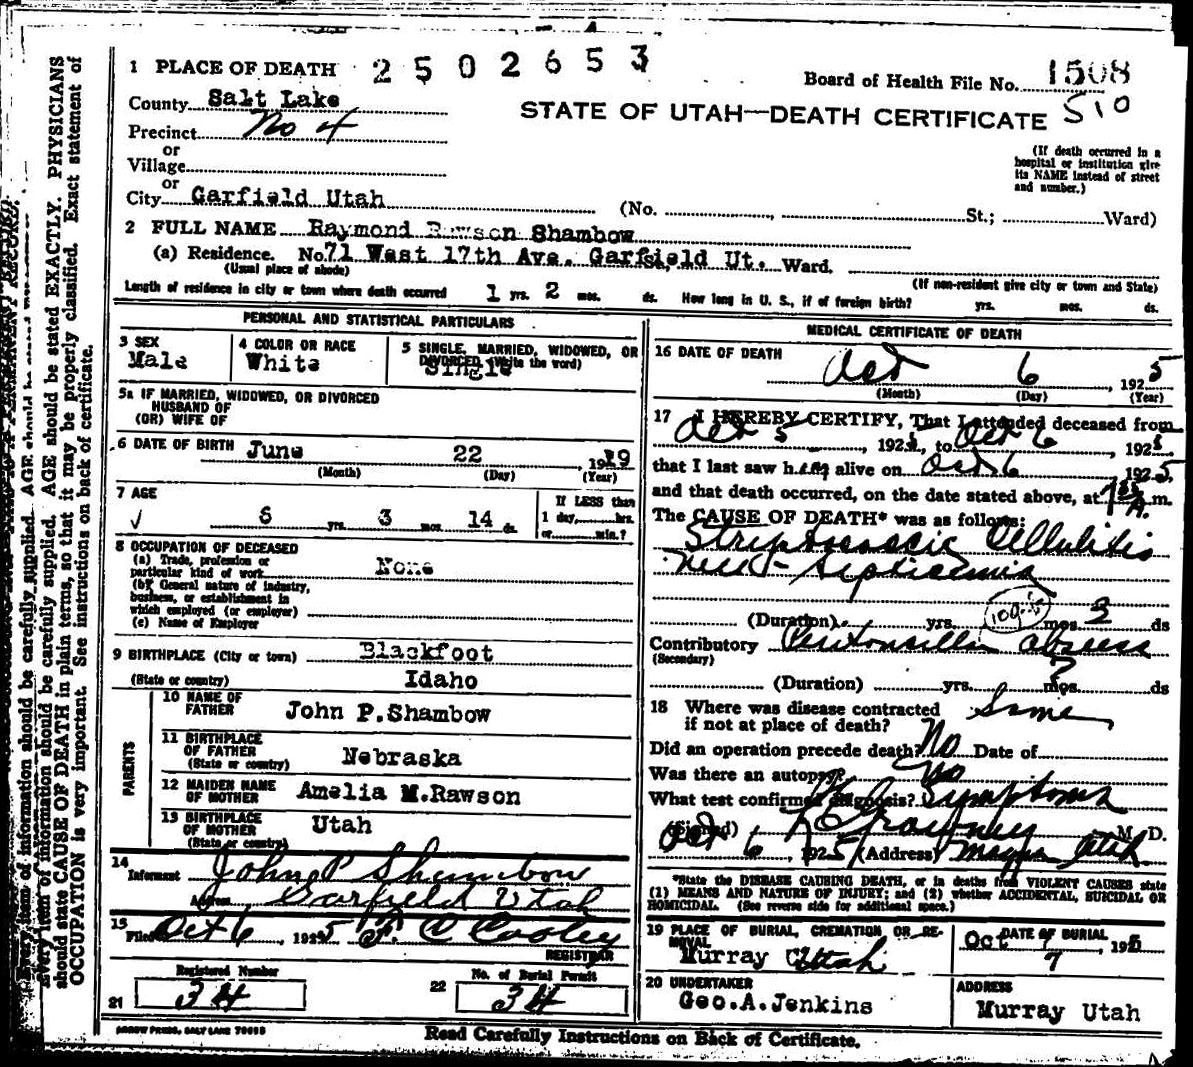 1 PLACE OF DEATH 2502653
Board of Health File No. 1508
510
County Salt Lake
STATE OF UTAH—DEATH CERTIFICATE
Precinct No 4
or
Village
or
City Garfield Utah
(No. , St.; Ward)
(If death occurred in a
hospital or institution give
its NAME instead of street
and number.)
2 FULL NAME Raymond Rawson Shambow
(a) Residence. No. 71 West 17th Ave. Garfield Ut. Ward.
(Usual place of abode)
(If non-resident give city or town and State)
Length of residence in city or town where death occurred 1 yrs. 2 mos. ds. How long in U. S., if of foreign birth? yrs. mos. ds.
PERSONAL AND STATISTICAL PARTICULARS
3 SEX
Male
4 COLOR OR RACE
White
5 SINGLE, MARRIED, WIDOWED, OR
DIVORCED (Write the word)
Single
5a IF MARRIED, WIDOWED, OR DIVORCED
HUSBAND OF
(OR) WIFE OF
6 DATE OF BIRTH June 22 , 1919
(Month) (Day) (Year)
7 AGE
6 yrs. 3 mos. 14 ds.
If LESS than
1 day, hrs.
or min.?
8 OCCUPATION OF DECEASED
(a) Trade, profession or
particular kind of work None
(b) General nature of industry,
business, or establishment in
which employed (or employer)
(c) Name of Employer
9 BIRTHPLACE (City or town) Blackfoot
(State or country) Idaho
PARENTS
10 NAME OF
FATHER John P. Shambow
11 BIRTHPLACE
OF FATHER
(State or country) Nebraska
12 MAIDEN NAME
OF MOTHER Amelia M. Rawson
13 BIRTHPLACE
OF MOTHER
(State or country) Utah
14
Informant John P Shambow
Address Garfield Utah
15
Filed Oct 6, 1925 F. C Cooley
REGISTRAR
Registered Number
21 34
No. of Burial Permit
22 34
MEDICAL CERTIFICATE OF DEATH
16 DATE OF DEATH
Oct 6 , 1925
(Month) (Day) (Year)
17 I HEREBY CERTIFY, That I attended deceased from
Oct 5 1925, to Oct 6, 1925
that I last saw him alive on Oct 6 1925
and that death occurred, on the date stated above, at A. m.
The CAUSE OF DEATH* was as follows:
Streptococcic Cellulitis
Neck - Septicemia
(Duration) yrs. mos. 3 ds
Contributory Peritonsillar abscess
(Secondary)
?
(Duration) yrs. mos. ds
18 Where was disease contracted
if not at place of death? Same
Did an operation precede death? No Date of
Was there an autopsy? No
What test confirmed diagnosis? Symptoms
(Signed) M. D.
Oct 6, 1925 (Address) Magna Utah
*State the DISEASE CAUSING DEATH, or in deaths from VIOLENT CAUSES state
(1) MEANS AND NATURE OF INJURY; and (2) whether ACCIDENTAL, SUICIDAL OR
HOMICIDAL. (See reverse side for additional space.)
19 PLACE OF BURIAL, CREMATION OR RE-
MOVAL
Murray Utah
DATE OF BURIAL
Oct 7, 1925
7
20 UNDERTAKER
Geo. A. Jenkins
ADDRESS
Murray Utah
ARROW PRESS, SALT LAKE
Read Carefully Instructions on Back of Certificate.
Every item of information should be carefully supplied. AGE should be stated EXACTLY. PHYSICIANS
should state CAUSE OF DEATH in plain terms, so that it may be properly classified. Exact statement of
OCCUPATION is very important. See instructions on back of certificate.